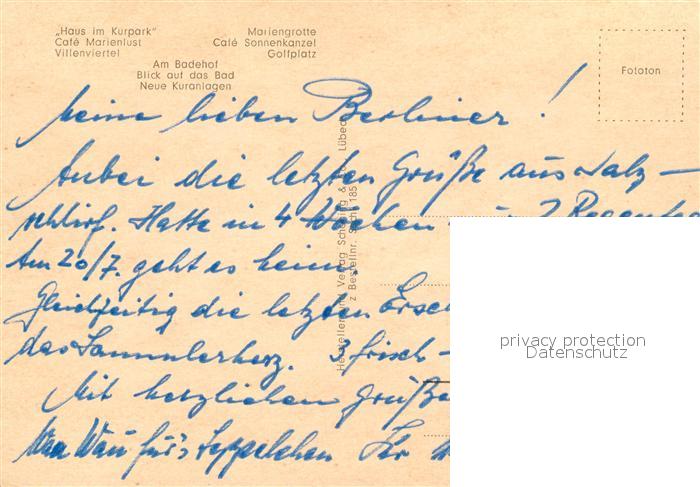 „Haus im Kurpark"
Café Marienlust
Villenviertel
Mariengrotte
Café Sonnenkanzel
Golfplatz
Am Badehof
Blick auf das Bad
Neue Kuranlagen
Fototon
Meine lieben Berliner!
Anbei die letzten Grüße aus Salz-
schlirf. Hatte in 4 Wochen 2
Am 20/7. geht es heim.
Gleichzeitig die letzten
das Sammlerherz. 3 frisch-
Mit herzlichen Grüße
Wau Wau für's Seppelchen Ihr
Hersteller und Verlag Schöning & Co., Lübeck
Bestellnr.
privacy protection
Datenschutz